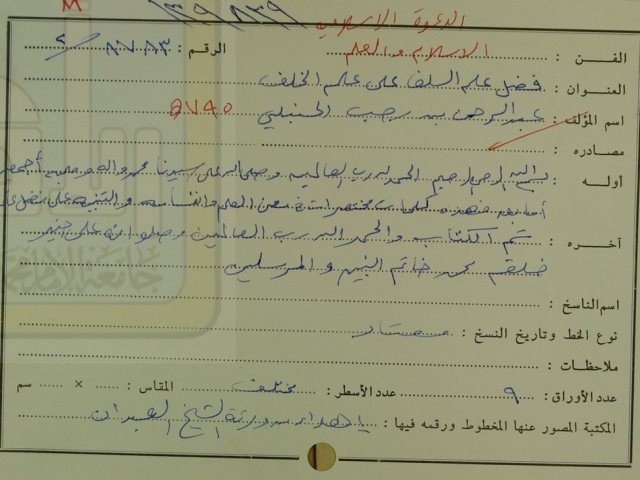 M
١٣٩٨٣٩
الدعوة الاسلامية
الفن : الاسلام والعلم الرقم : ٨٧٠٨٣ / ٢
العنوان : فضل علم السلف على علم الخلف
اسم المؤلف : عبد الرحمن بن رجب الحنبلي ٥٧٩٥
مصادره :
أوله : بسم الله الرحمن الرحيم الحمد لله رب العالمين وصلى الله على سيدنا محمد واله وصحبه أجمعين
أما بعد فهذه كلمات مختصرات في معنى العلم وانقسامه والتنبيه على فضل علم
آخره : تم الكتاب والحمد لله رب العالمين وصلواته على خير
خلقه محمد خاتم النبيين والمرسلين
اسم الناسخ :
نوع الخط وتاريخ النسخ : معتاد
ملاحظات :
عدد الأوراق : ٩ عدد الأسطر : مختلف المقاس : × سم
المكتبة المصور عنها المخطوط ورقمه فيها : اهداء من ورثة الشيخ العبدان